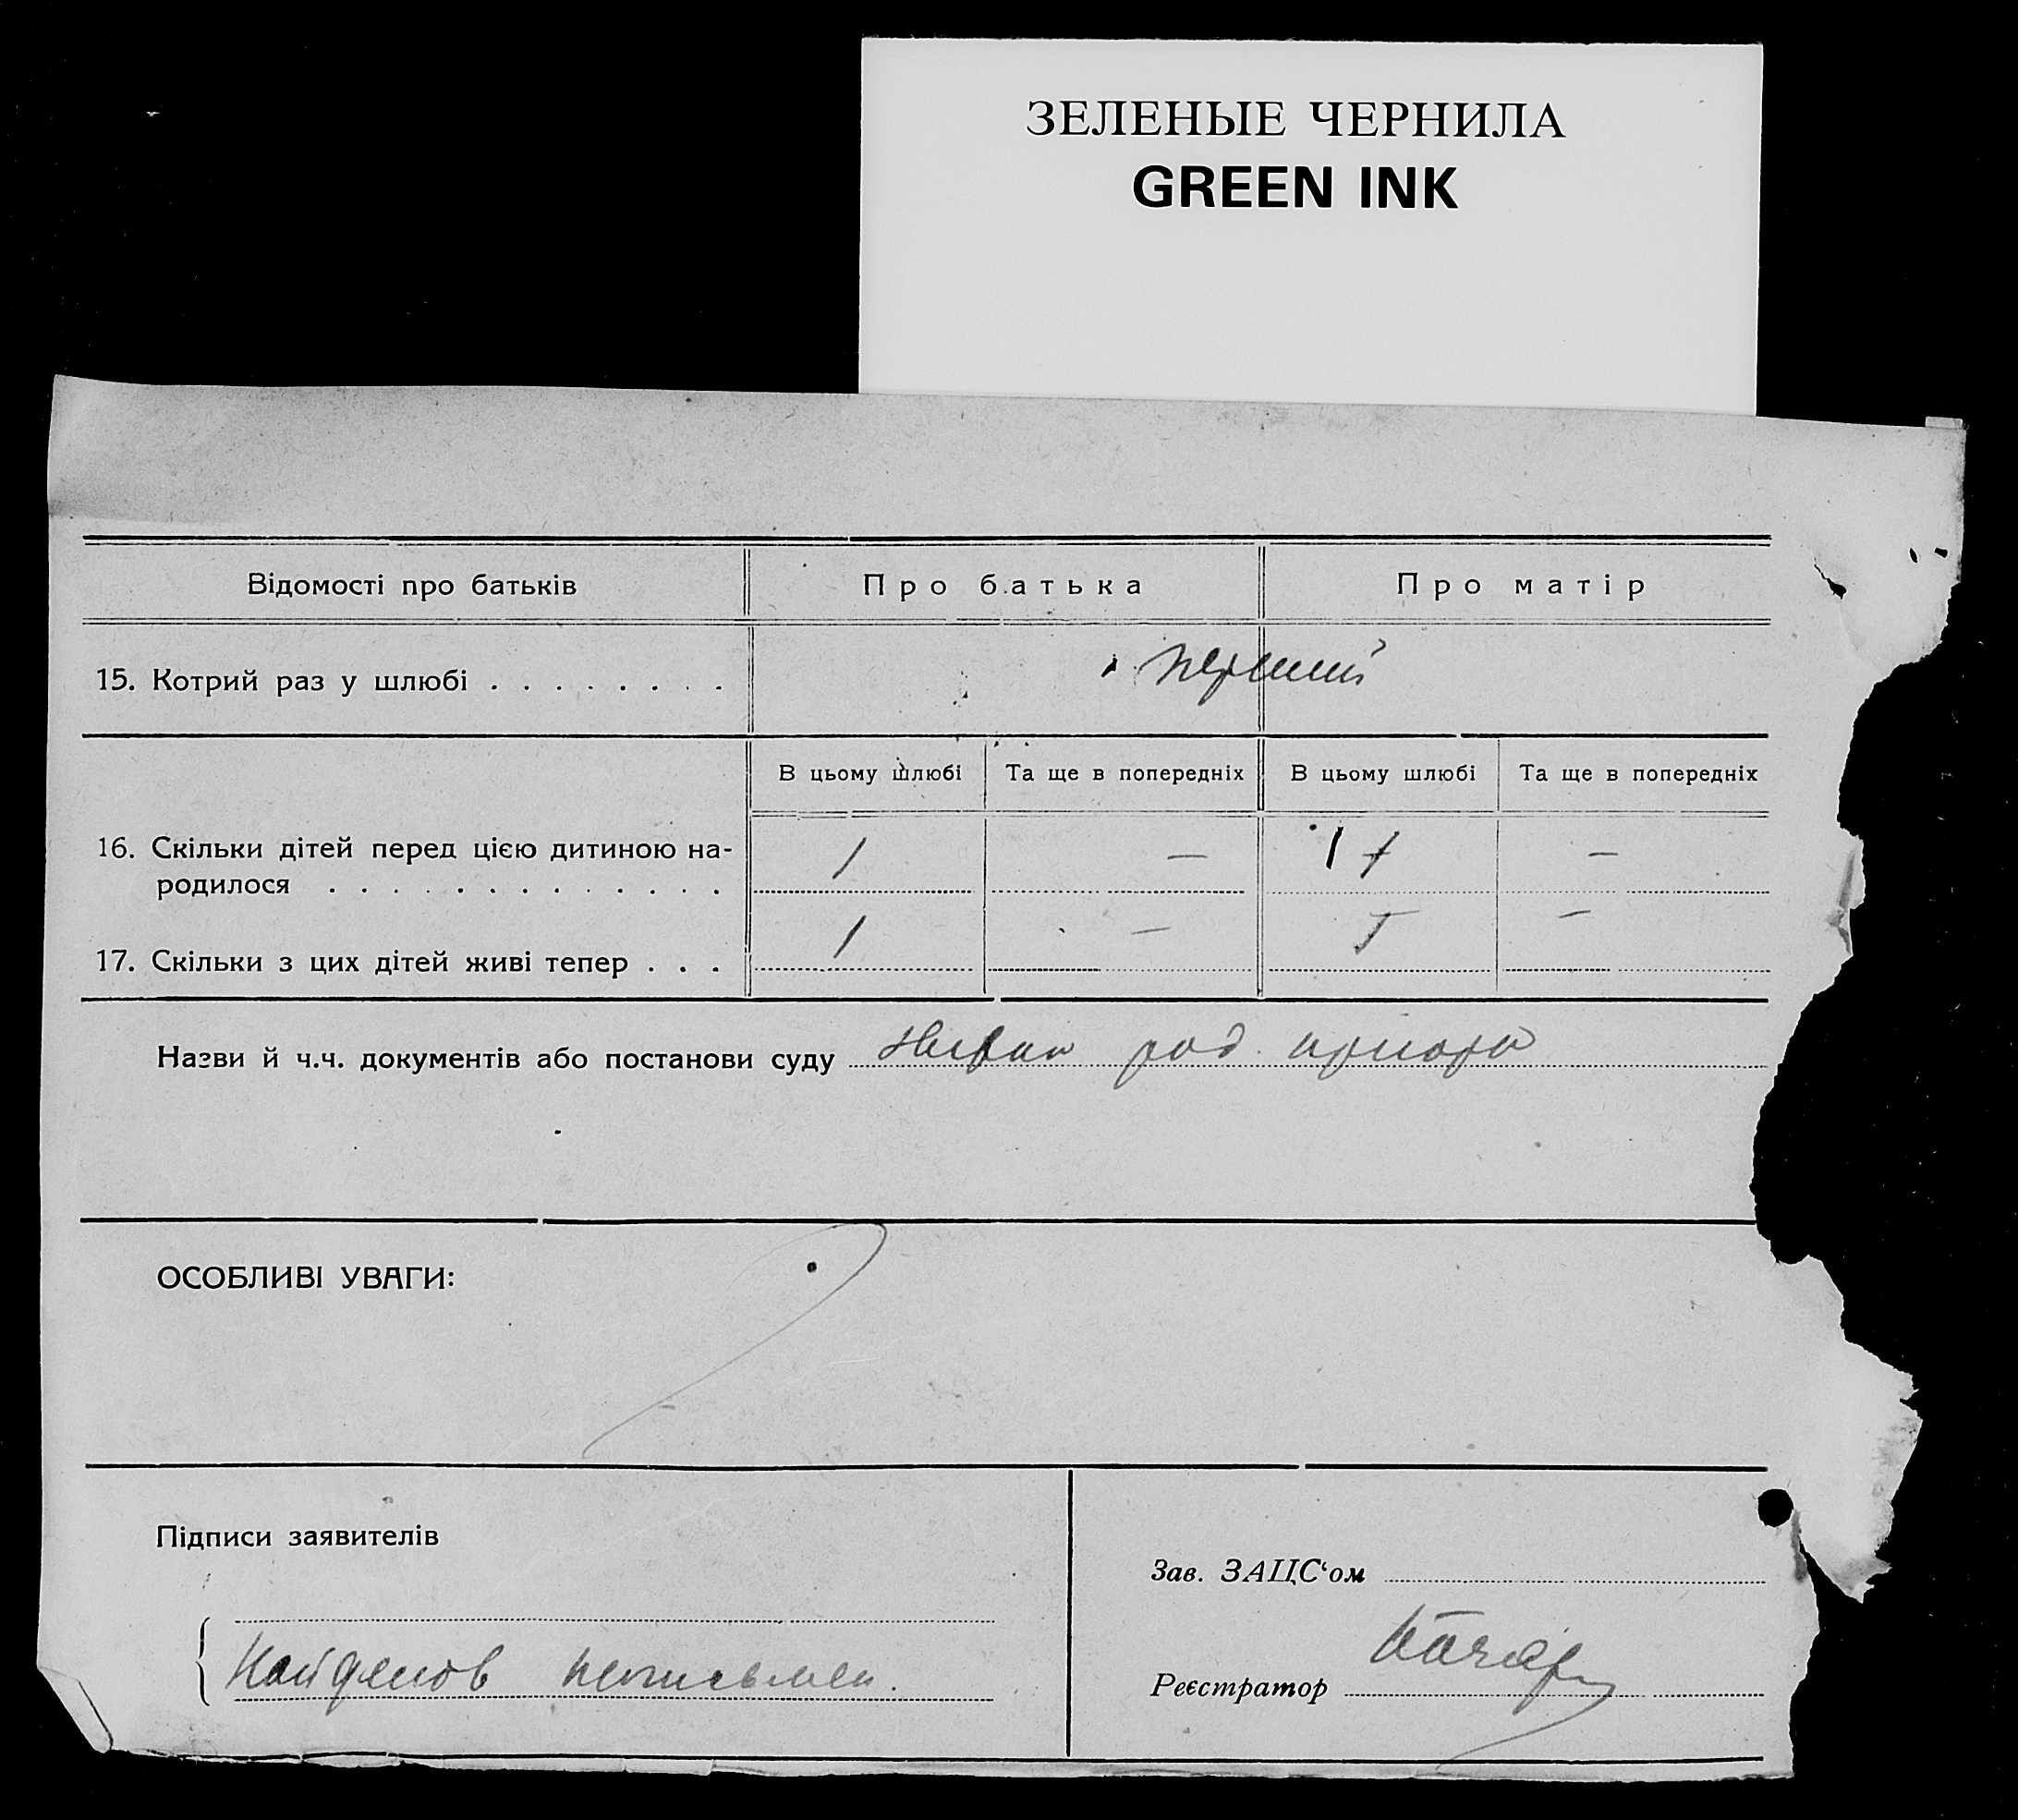 ЗЕЛЕНЫЕ ЧЕРНИЛА
GREEN INK
Відомості про батьків Про батька Про матір
15. Котрий раз у шлюбі . . . . . . . . перший
В цьому шлюбі Та ще в попередніх В цьому шлюбі Та ще в попередніх
16. Скільки дітей перед цією дитиною на-
родилося . . . . . . . . . . . . . 1 — 1 —
17. Скільки з цих дітей живі тепер . . . 1 — 1 —
Назви й ч.ч. документів або постанови суду
ОСОБЛИВІ УВАГИ:
Підписи заявителів
Зав. ЗАЦС‘ом
Найденов неписьмен.
Реєстратор